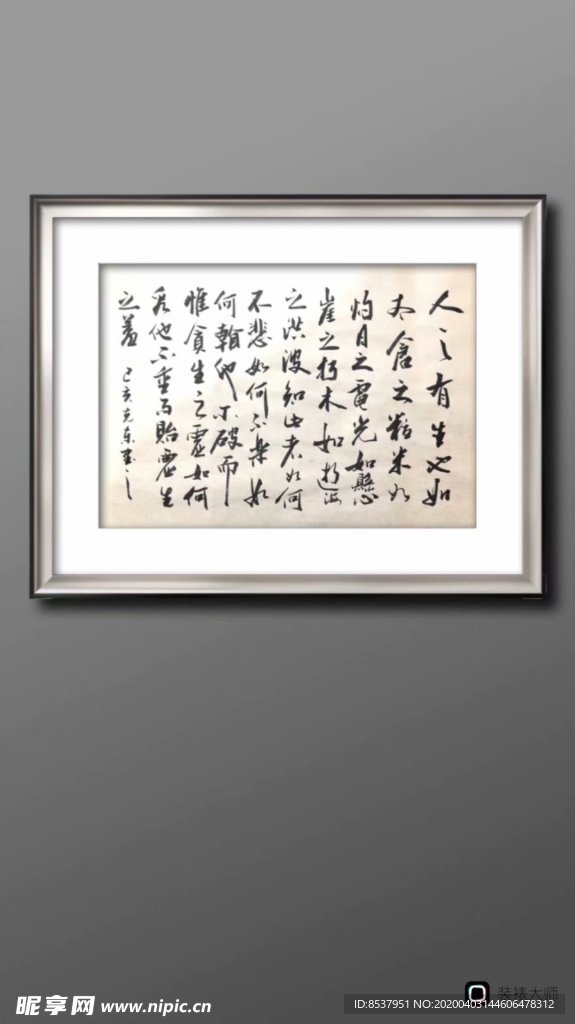 人之有生也如
太倉之粒米如
灼目之電光如懸
崖之朽木如逝海
之洪波知此者如何
不悲如何不樂如
何看他不破而
惟貪生之慮如何
看他不重而貽虛生
之羞
己亥克东書之
装裱大师
昵享网 www.nipic.cn
ID:8537951 NO:20200403144606478312